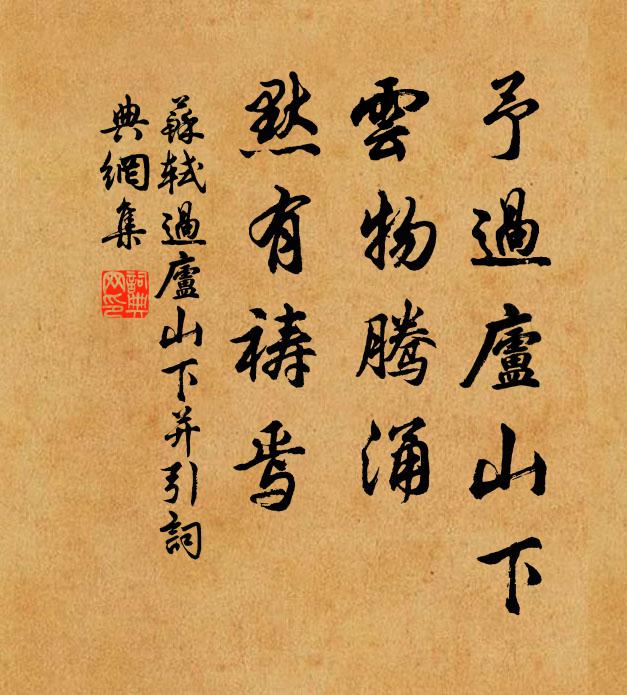 予過廬山下
雲物騰涌
默有禱焉
蘇軾過廬山下并引詞
典網集
詞典网印